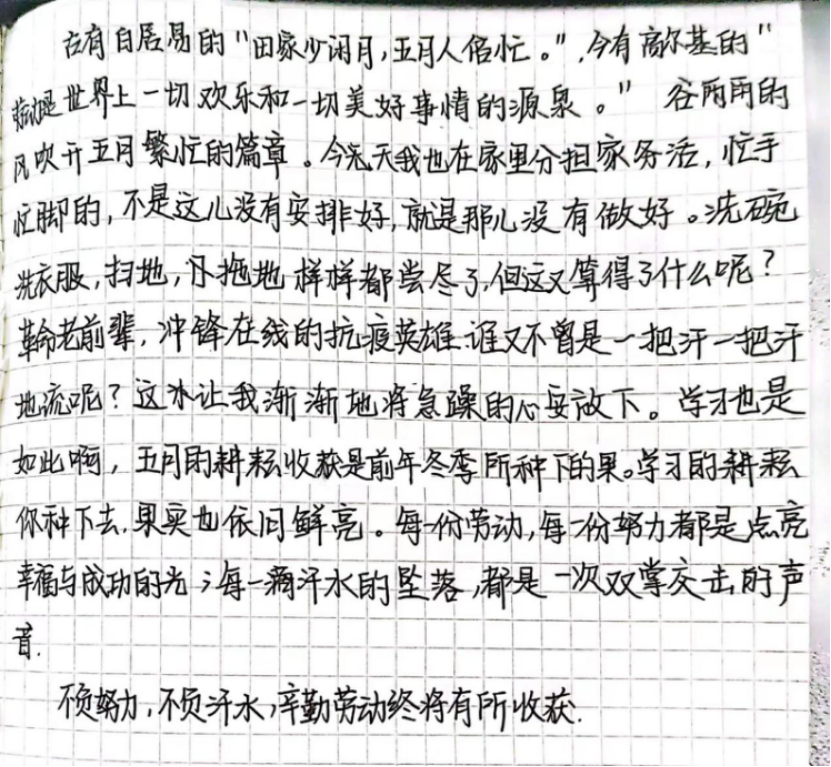 古有白居易的"田家少闲月,五月人倍忙。",今有高尔基的"
劳动是世界上一切欢乐和一切美好事情的源泉。" 谷雨雨的
风吹开五月繁忙的篇章。今天我也在家里分担家务活,忙手
忙脚的,不是这儿没有安排好,就是那儿没有做好。洗碗
洗衣服,扫地,拖地样样都尝尽了,但这又算得了什么呢?
革命老前辈,冲锋在线的抗疫英雄谁又不曾是一把汗一把汗
地流呢?这让我渐渐地将急躁的心安放下。学习也是
如此啊,五月的耕耘收获是前年冬季所种下的果。学习的耕耘
你种下去,果实也依旧鲜亮。每一份劳动,每一份努力都是点亮
幸福与成功的光;每一滴汗水的坠落,都是一次双掌交击的声
音.
不负努力,不负汗水,辛勤劳动终将有所收获.